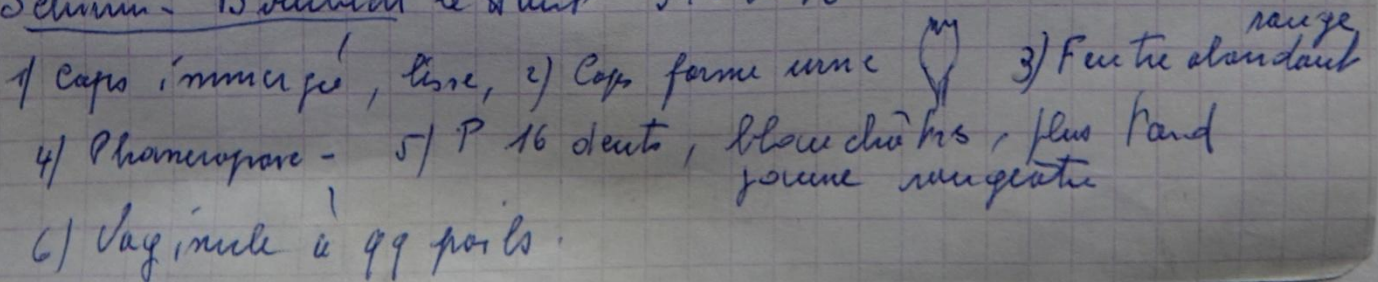 rouge
1) Caps immergée, lisse, 2) Caps forme urne 3) Feutre abondant
4) Phanéropore - 5) P 16 dents, blanchâtres, plus tard
jaune rougeâtre
6) Vaginule à qq poils.